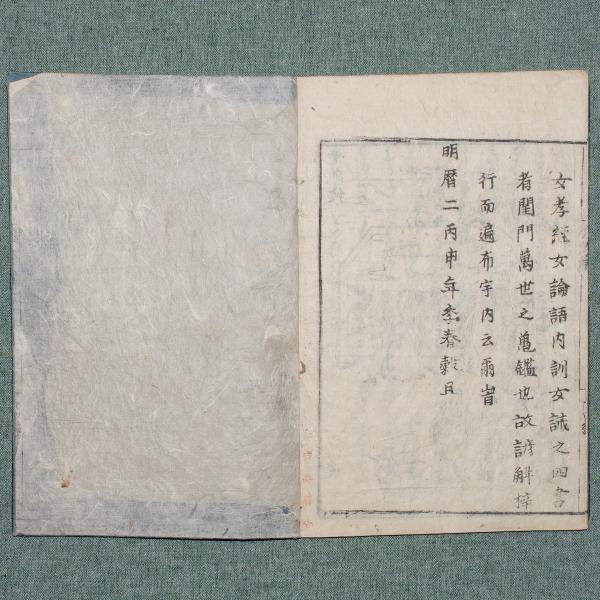 女孝經女論語内訓女誡之四書
者閨門萬世之龜鑑也故諺解梓
行而遍布宇内云爾旹
明暦二丙申年季春穀旦